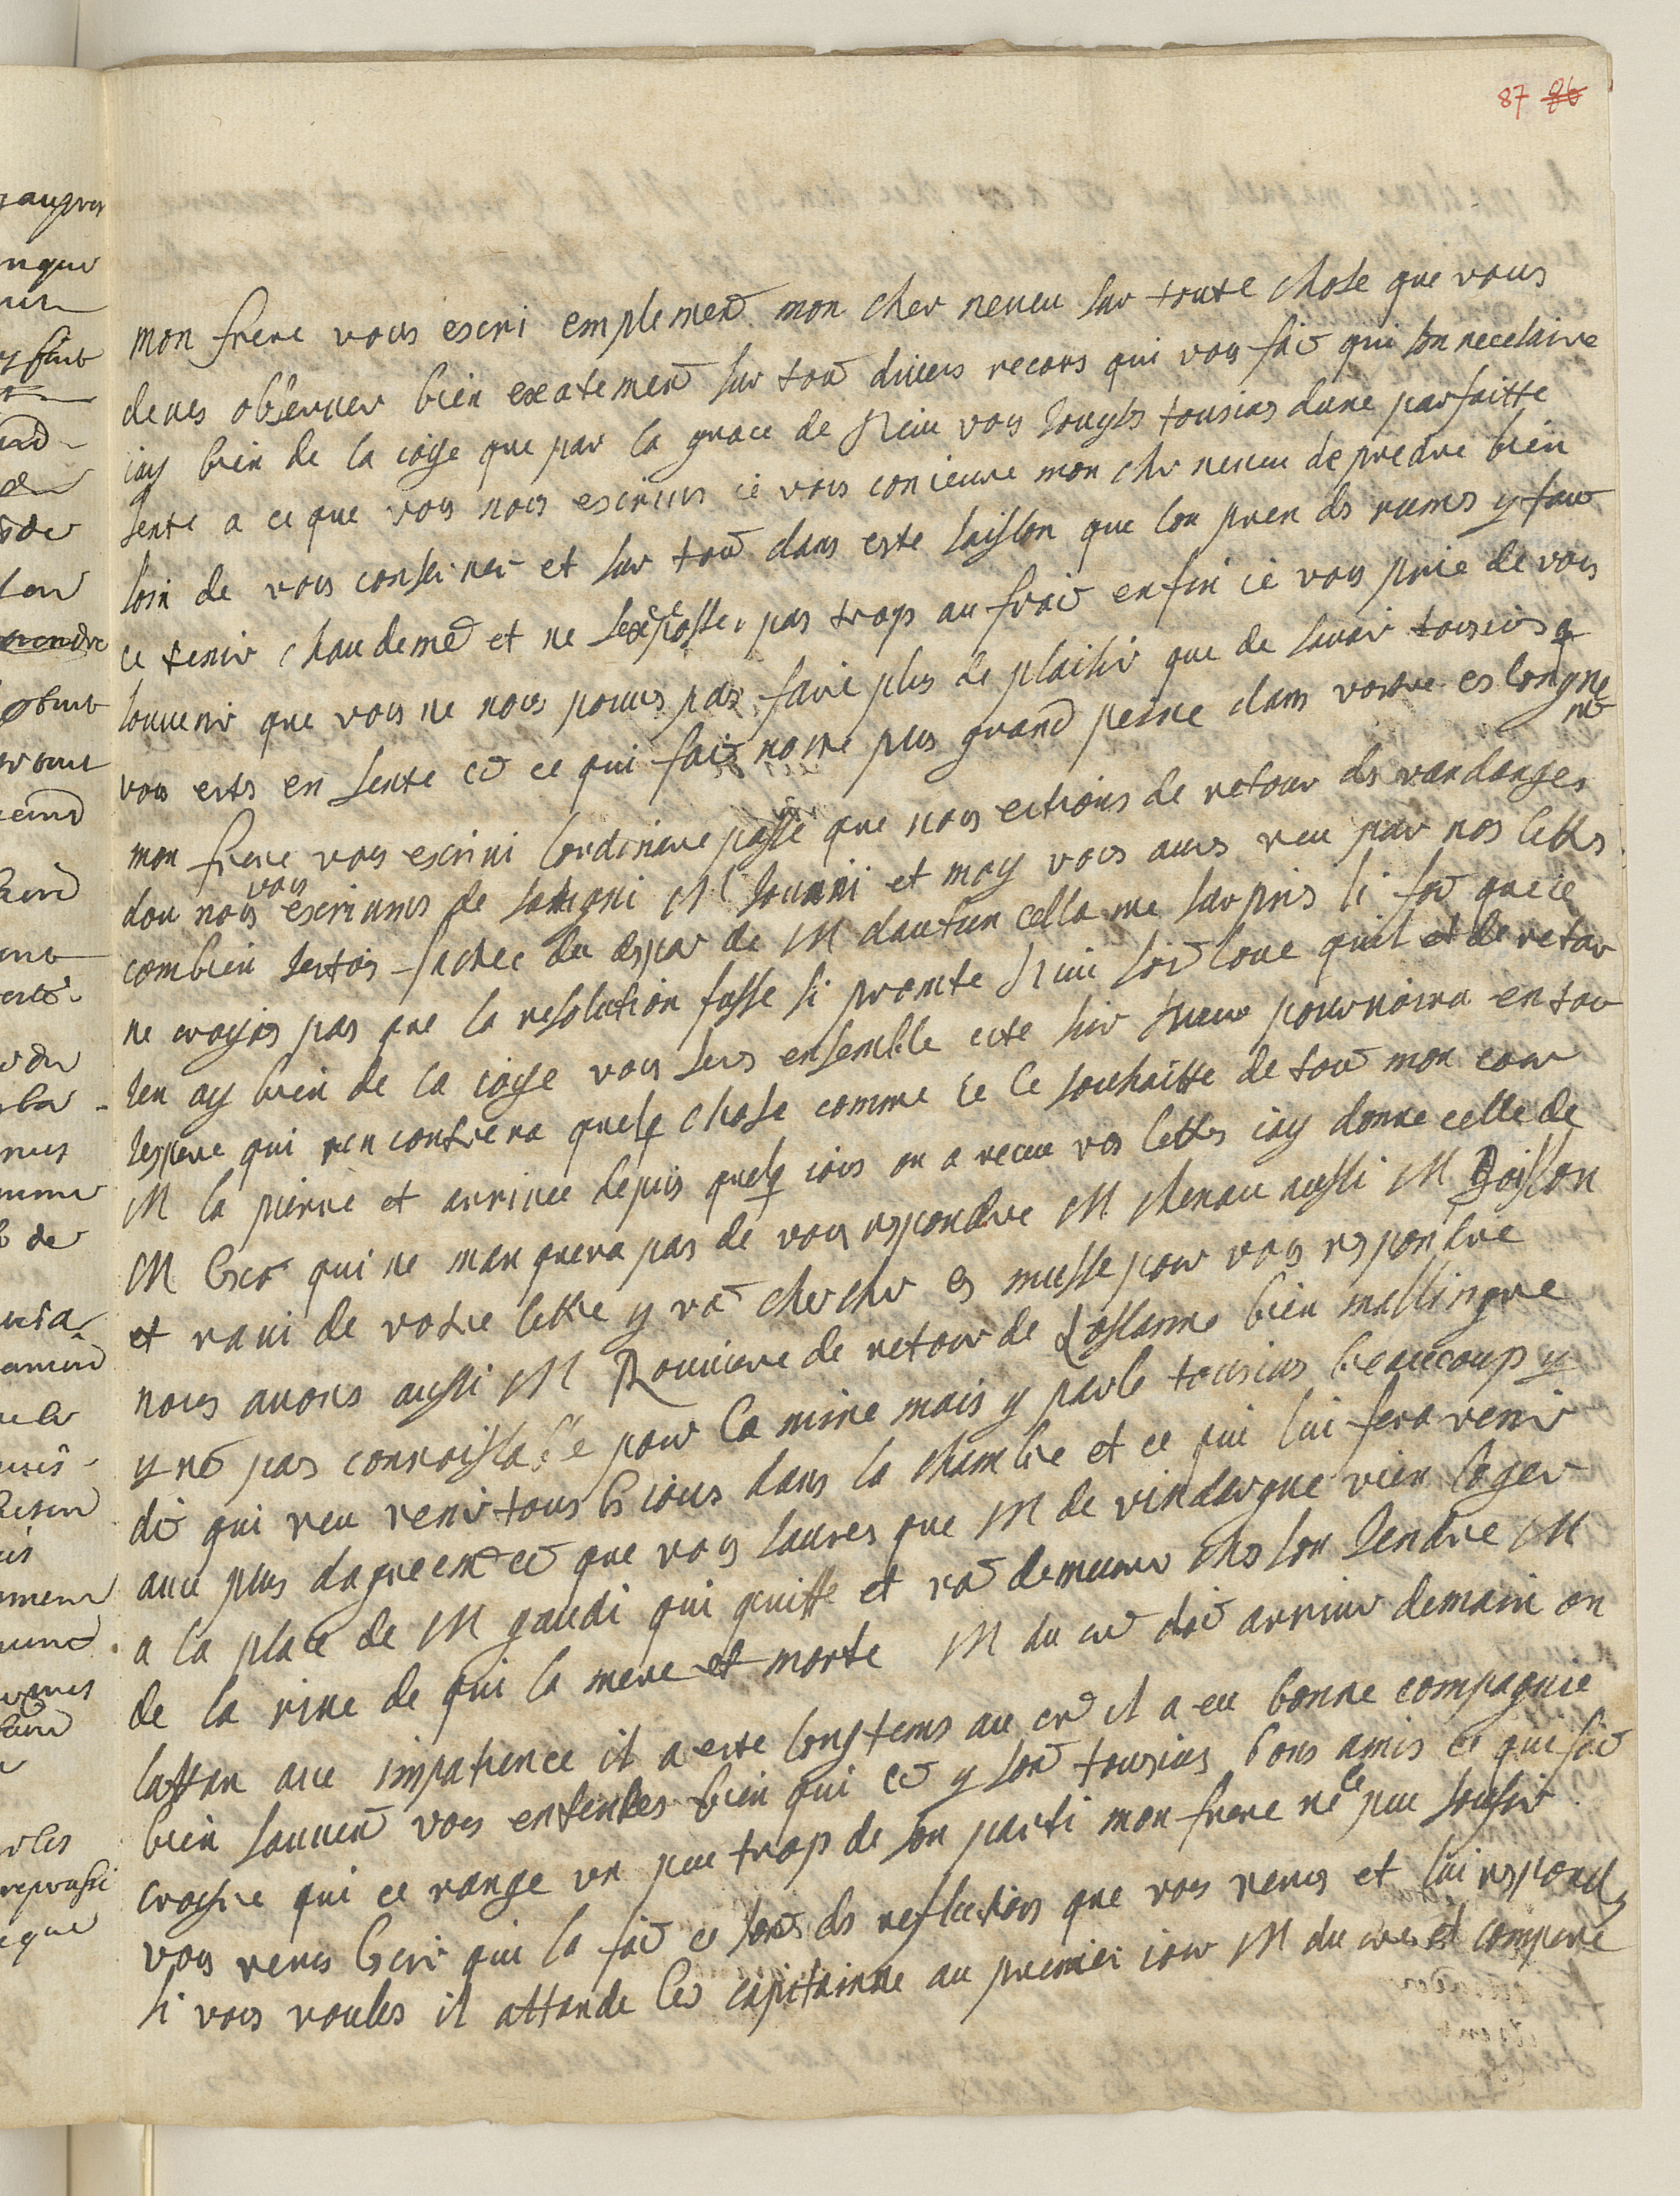 87 86
mon frere vous escri emplement mon cher neveu sur toute chose que vous
deves observer bien exatement sur tout divers recors qui vous fait qui son necesaire
iay bien de la ioye que par la grace de Dieu vous souyes tousios dune parfaitte
sente a ce que vous nous escrives ie vous conieure mon cher neveu de predre bien
soin de vous conserver et sur tout dans este saisson que lon pren ds rumes y faut
ce tenir chaudemet et ne sexposser pas trop au froit enfin ie vous prie de vous
souvenir que vous ne nous pouves pas faire plus de plaisir que de savoir tousiors q
vous estes en sente cet ce qui fait notre plus grand peine dans vostre eslongne
met
mon frere vous escrivi lordinaire passé que nous estions de retour ds vandanges
dou nous vous escrivimes de M et moy vous aves veu par nos lettes
combien iestois fachee du depar de M dautun cella me surpris si fort que ie
ne croyois pas que la resolution fusse si promte Dieu soit loue quil et de retour
ien ay bien de la ioye vous seres ensemble cite sur pourvoira en tout
iespere qui rencontrera quelq chose comme ie le souhaitte de tout mon cour
M la pierre et arrivee depuis quelq iours on a receu vos lettes iay donne celle de
M qui ne manquera pas de vous respondre M chenau aussi M Boisson
et ravi de votre lettre y va chercher es musse pour vous respondre
nous avons aussi M Rouviere de retour de Lossanne bien mallingre
y net pas connoissable pour la mine mais y parle tousious beaucoup y
dit qui veu venir tous ls ious dans la chambre et ce qui lui fera venir
avec plus dagreemt cet que vous saures que M de vindargue vien loger
a la place de M gaudi qui quitte et va demeurer ches son iendre M
de la rive de qui la mere et morte M du cret doit arriver demain on
lattan avec impatience il a este longtems au cret il a eu bonne compagnie
bien souvent vous entendes bien qui cet y sont tousious bons amis ce qui fait
croysre qui ce range un peu trop de son parti mon frere ne le peu soufrir
vous veres lecri qui la fait ce sont ds reflections que vous veres et lui respondes
si vous voules il attande les capitainne au premier iour M du cret et compere